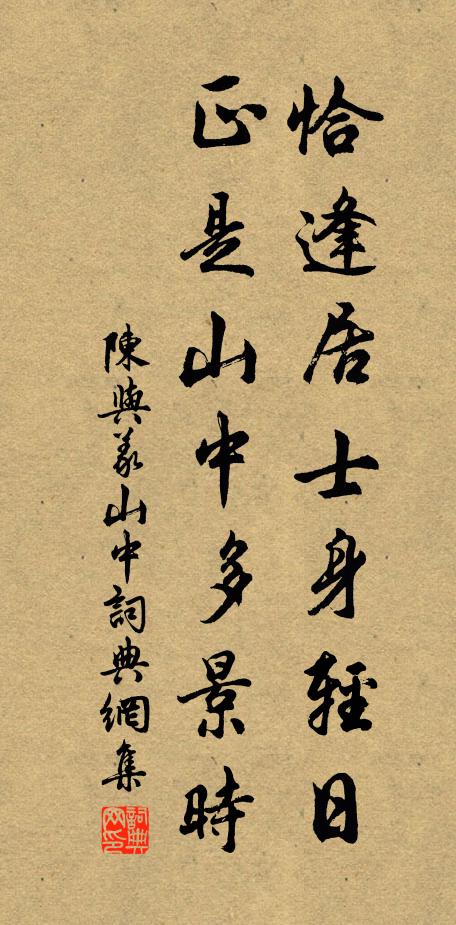 恰逢居士身輕日
正是山中多景時
陳與義山中詞典網集
詞典網印